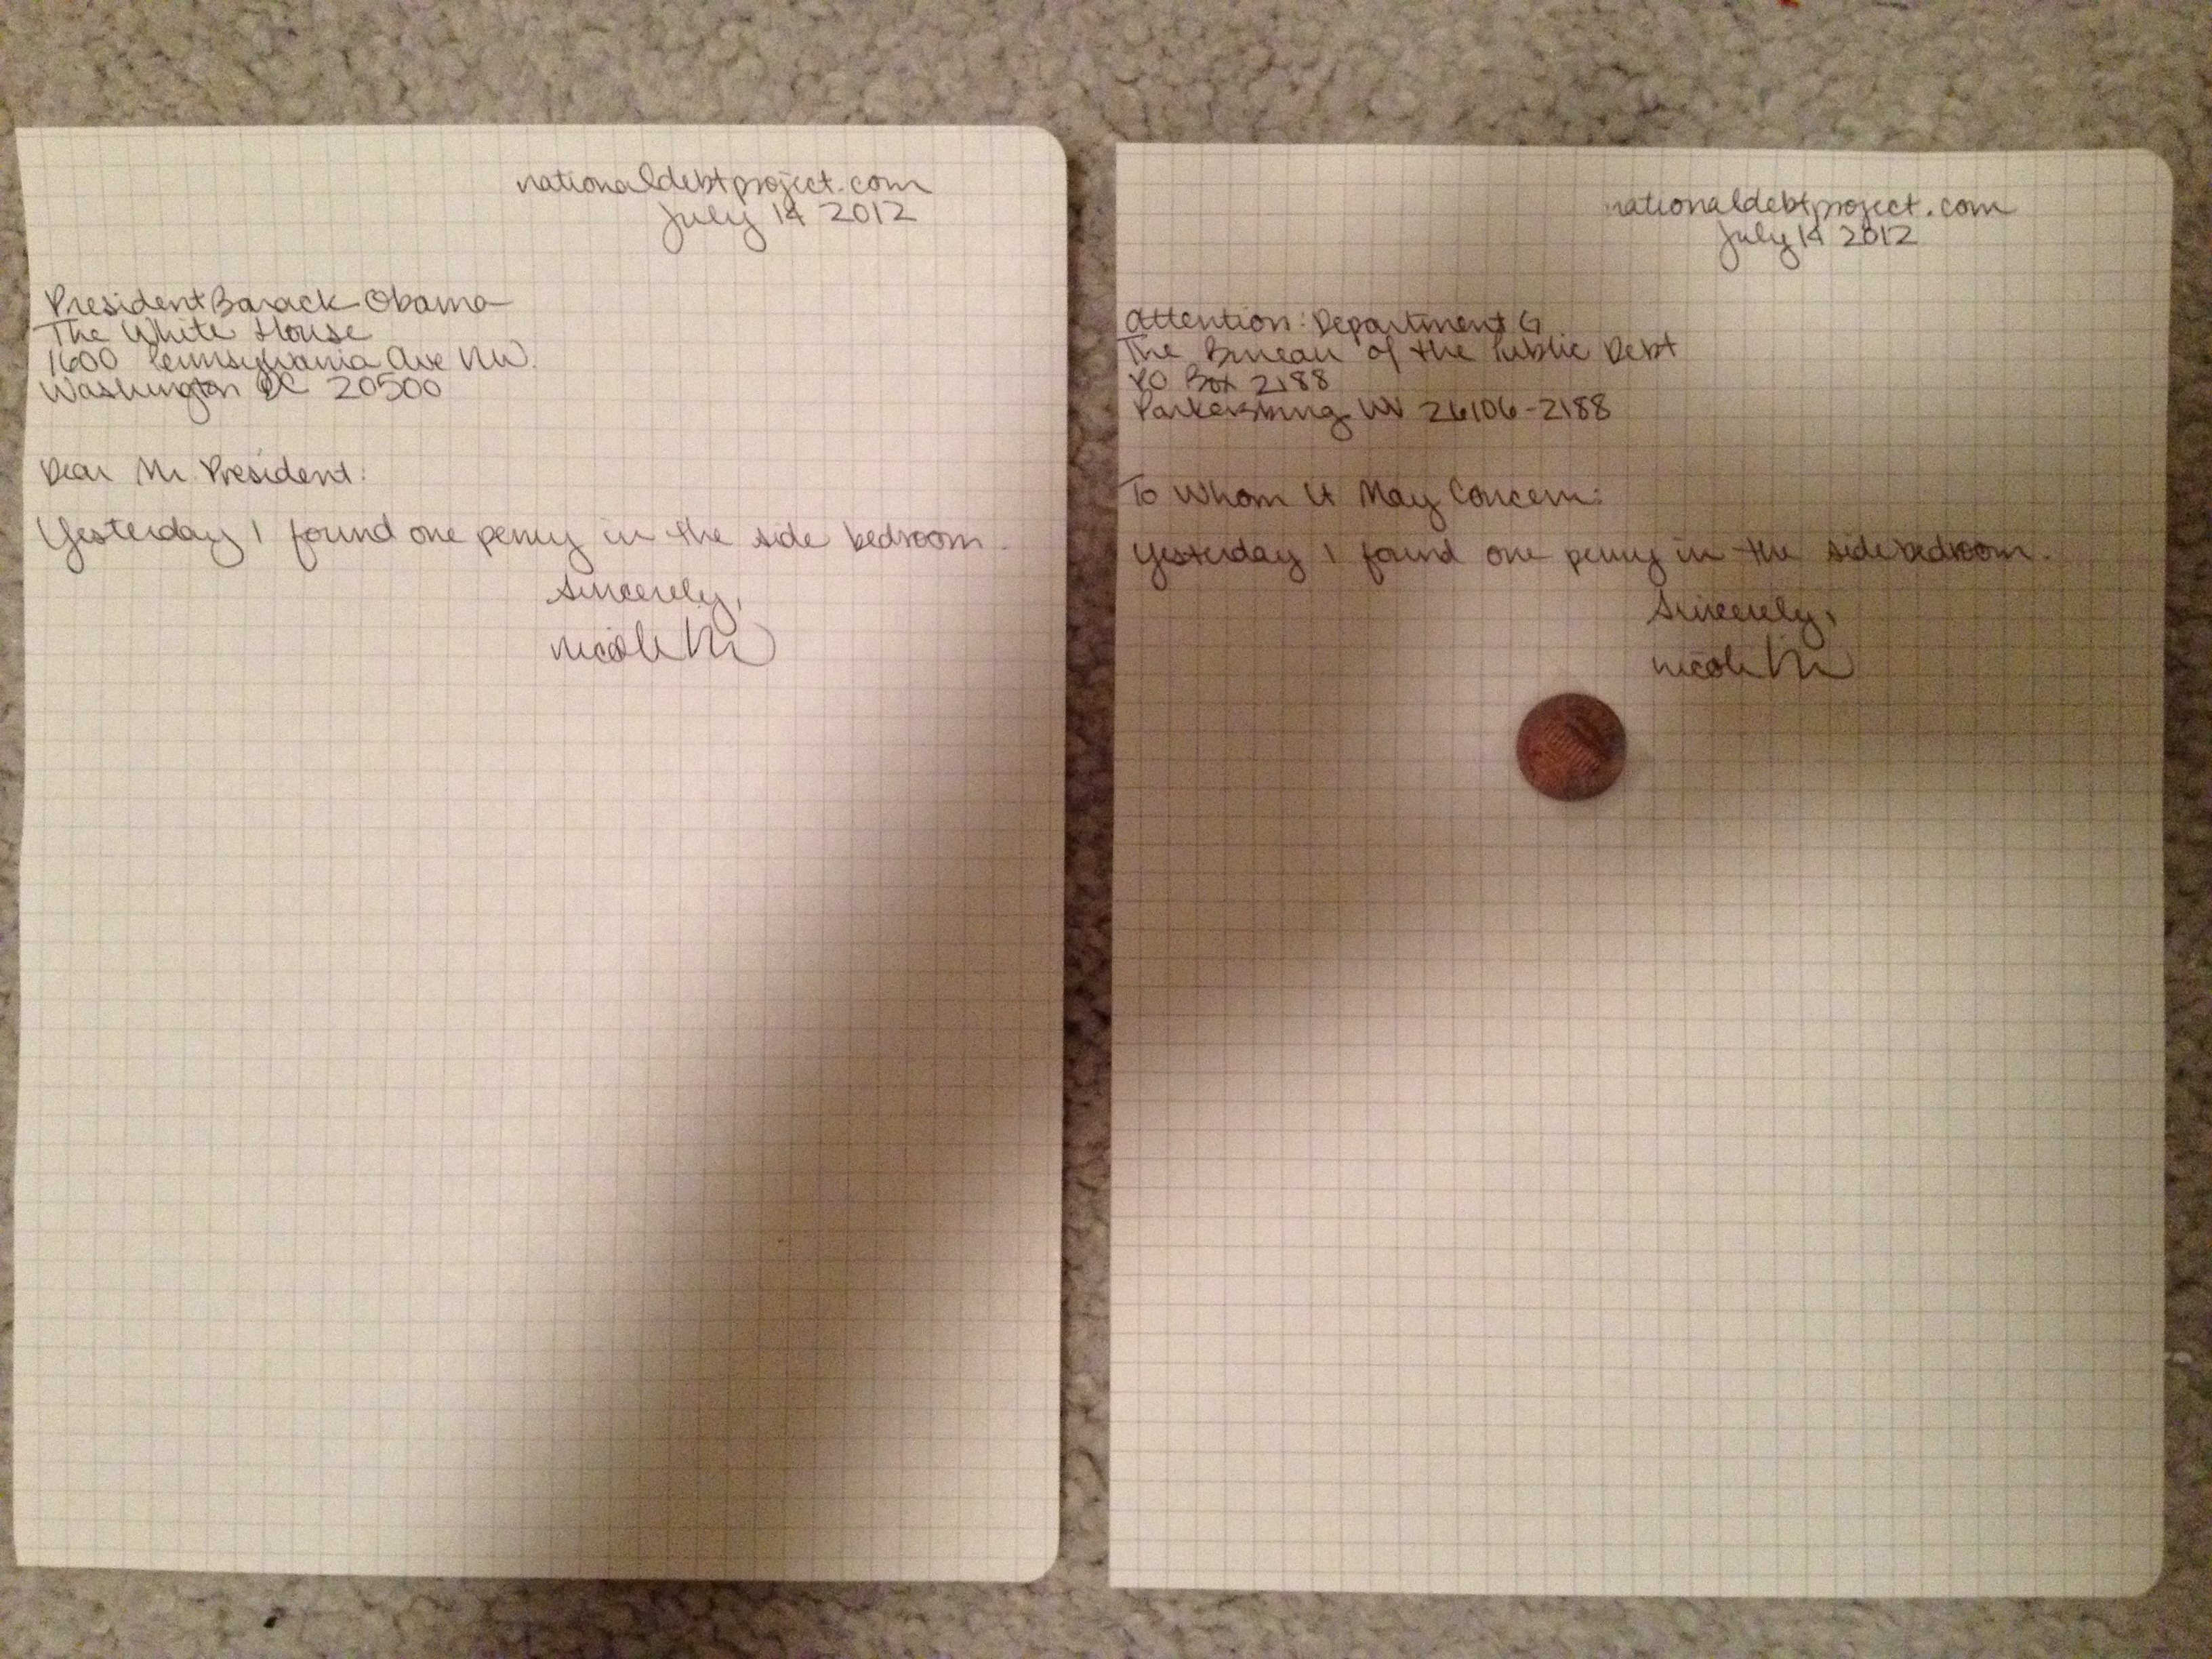 nationaldebtproject.com
July 14 2012
President Barack Obama
The White House
1600 Pennsylvania Ave NW.
Washington DC 20500
Dear Mr. President:
Yesterday I found one penny in the side bedroom.
Sincerely,
nicole
nationaldebtproject.com
July 14 2012
Attention: Department G
The Bureau of the Public Debt
PO Box 2188
Parkersburg WV 26106-2188
To Whom It May Concern:
Yesterday I found one penny in the side bedroom.
Sincerely,
nicole